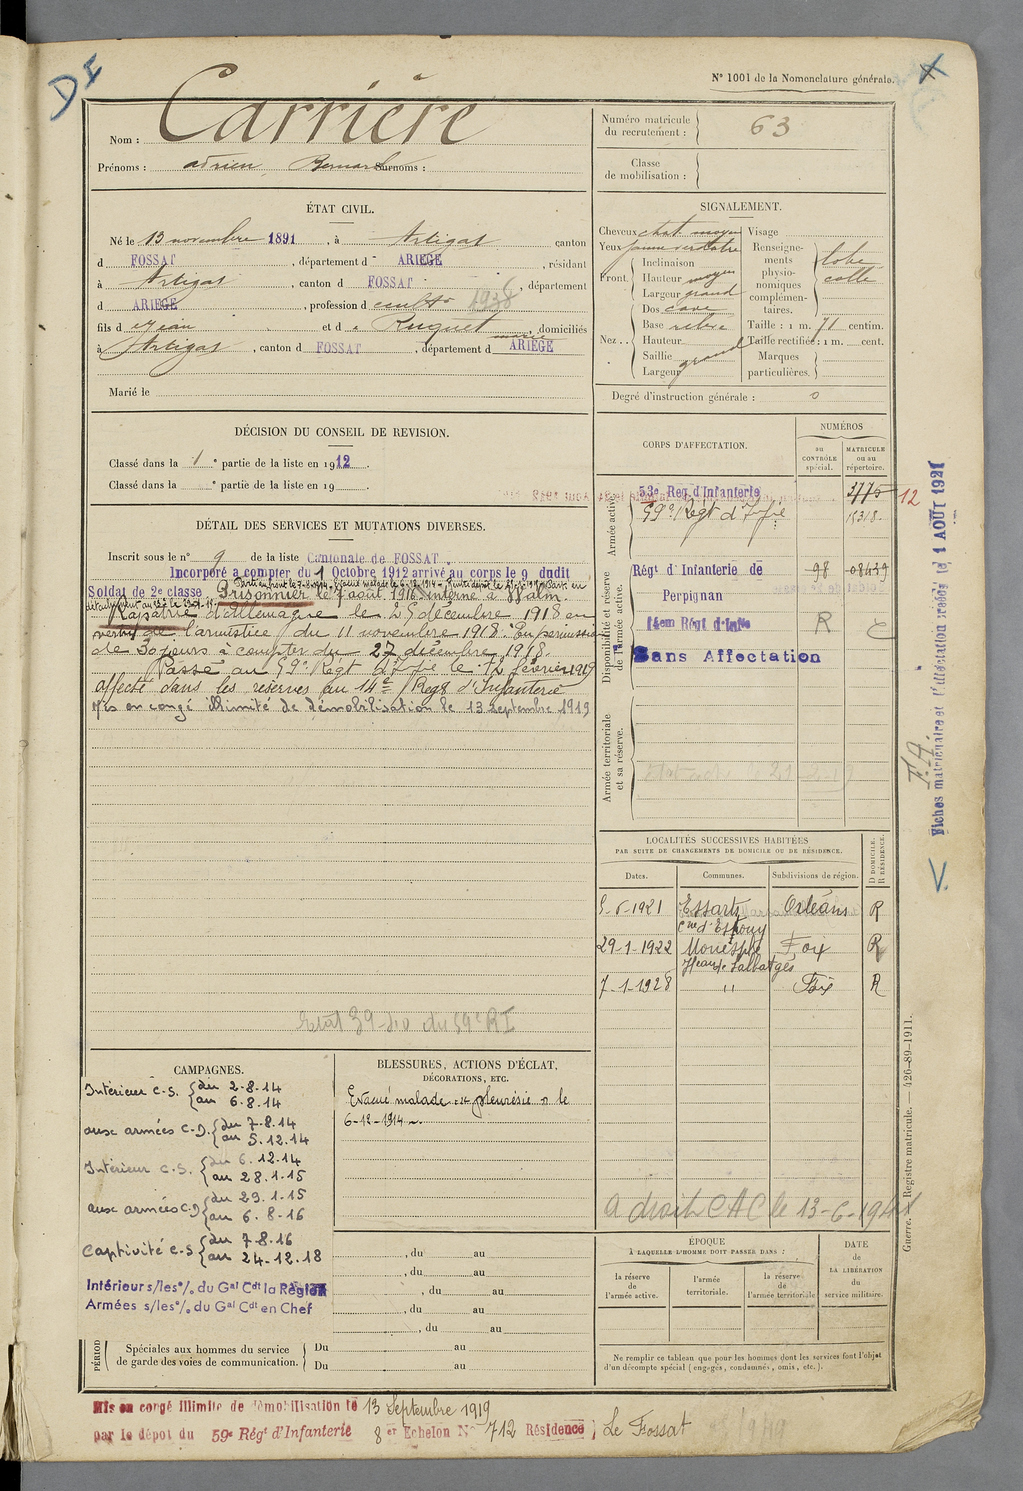 DI
N° 1001 de la Nomenclature générale.
Nom : Carrière
Prénoms : adrien, Bernard Surnoms :
Numéro matricule du recrutement : 63
Classe de mobilisation :
ÉTAT CIVIL.
Né le 13 novembre 1891, à Artigat canton
d FOSSAT, département d ARIEGE, résidant
à Artigat, canton d FOSSAT, département
d ARIEGE, profession d cult 1938
fils d Jean et d Ruquet marie, domiciliés
à Artigat, canton d FOSSAT, département d ARIEGE
Marié le
SIGNALEMENT.
Cheveux chat. moyen Visage
Yeux jaune verdatre
Front Inclinaison
Hauteur moyen
Largeur grand
Nez Dos cave
Base relevé
Hauteur
Saillie
Largeur grand
Renseignements physionomiques complémentaires. lobe collé
Taille : 1 m. 71 centim.
Taille rectifiée : 1 m. cent.
Marques particulières.
Degré d'instruction générale : 0
DÉCISION DU CONSEIL DE REVISION.
Classé dans la 1e partie de la liste en 1912.
Classé dans la e partie de la liste en 19
DÉTAIL DES SERVICES ET MUTATIONS DIVERSES.
Inscrit sous le n° 9 de la liste Cantonale de FOSSAT.
Incorporé a compter du 1 Octobre 1912 arrivé au corps le 9 dudit
Soldat de 2e classe Prisonnier le 7 août 1916 interné à
Rapatrié d'Allemagne le 25 décembre 1918 en
vertu de l'armistice du 11 novembre 1918. En permission
de 30 jours à compter du 27 décembre 1918.
Passé au 59e Régt d'Ifie le 12 février 1919
affecté dans les réserves au 14e Régt d'Infanterie
Mis en congé illimité de démobilisation le 13 septembre 1919
Etat 39-210 du 59e RI
CORPS D'AFFECTATION.
NUMÉROS
au CONTRÔLE spécial.
MATRICULE ou au répertoire.
Armée active.
53e Reg. d'Infanterie 2775 12
59e Régt d'Ifie 15318.
Disponibilité et réserve de l'armée active.
Régt d'Infanterie de 98 08439
Perpignan
14em Régt d'Infie R C
Sans Affectation
Armée territoriale et sa réserve.
Fiches matriculaire et d'affectation créées le 1 AOUT 1921
F.A.
LOCALITÉS SUCCESSIVES HABITÉES
PAR SUITE DE CHANGEMENTS DE DOMICILE OU DE RÉSIDENCE.
D DOMICILE. R RÉSIDENCE.
Dates. Communes. Subdivisions de région.
5-5-1921 Essarts Orléans R
Cne d'Estouy
29-1-1922 Monesple Foix R
Heau de Salbatgès
7-1-1928 " Foix R
a droit CAC le 13-6-1941
CAMPAGNES.
Intérieur C.S. du 2-8-14
au 6-8-14
aux armées C.D. du 7-8-14
au 5.12.14
Intérieur C.S. du 6.12.14
au 28.1.15
aux armées C.D. du 29.1.15
au 6.8.16
Captivité C.S du 7.8.16
au 24.12.18
Intérieur s/les°/. du Gal Cdt la Région
Armées s/les°/. du Gal Cdt en Chef
BLESSURES, ACTIONS D'ÉCLAT, DÉCORATIONS, ETC.
Evacué malade "pleurésie" le
6-12-1914
, du au
, du au
, du au
, du au
, du au
PÉRIOD
Spéciales aux hommes du service de garde des voies de communication.
Du au
Du au
ÉPOQUE
À LAQUELLE L'HOMME DOIT PASSER DANS :
la réserve de l'armée active.
l'armée territoriale.
la réserve de l'armée territoriale
DATE de LA LIBÉRATION du service militaire.
Ne remplir ce tableau que pour les hommes dont les services font l'objet
d'un décompte spécial (engagés, condamnés, omis, etc.).
Guerre. Registre matricule. — 426-89-1911.
Mis en congé illimité de démobilisation le 13 Septembre 1919
par le dépôt du 59e Régt d'Infanterie 8er Echelon N° 712 Résidence Le Fossat